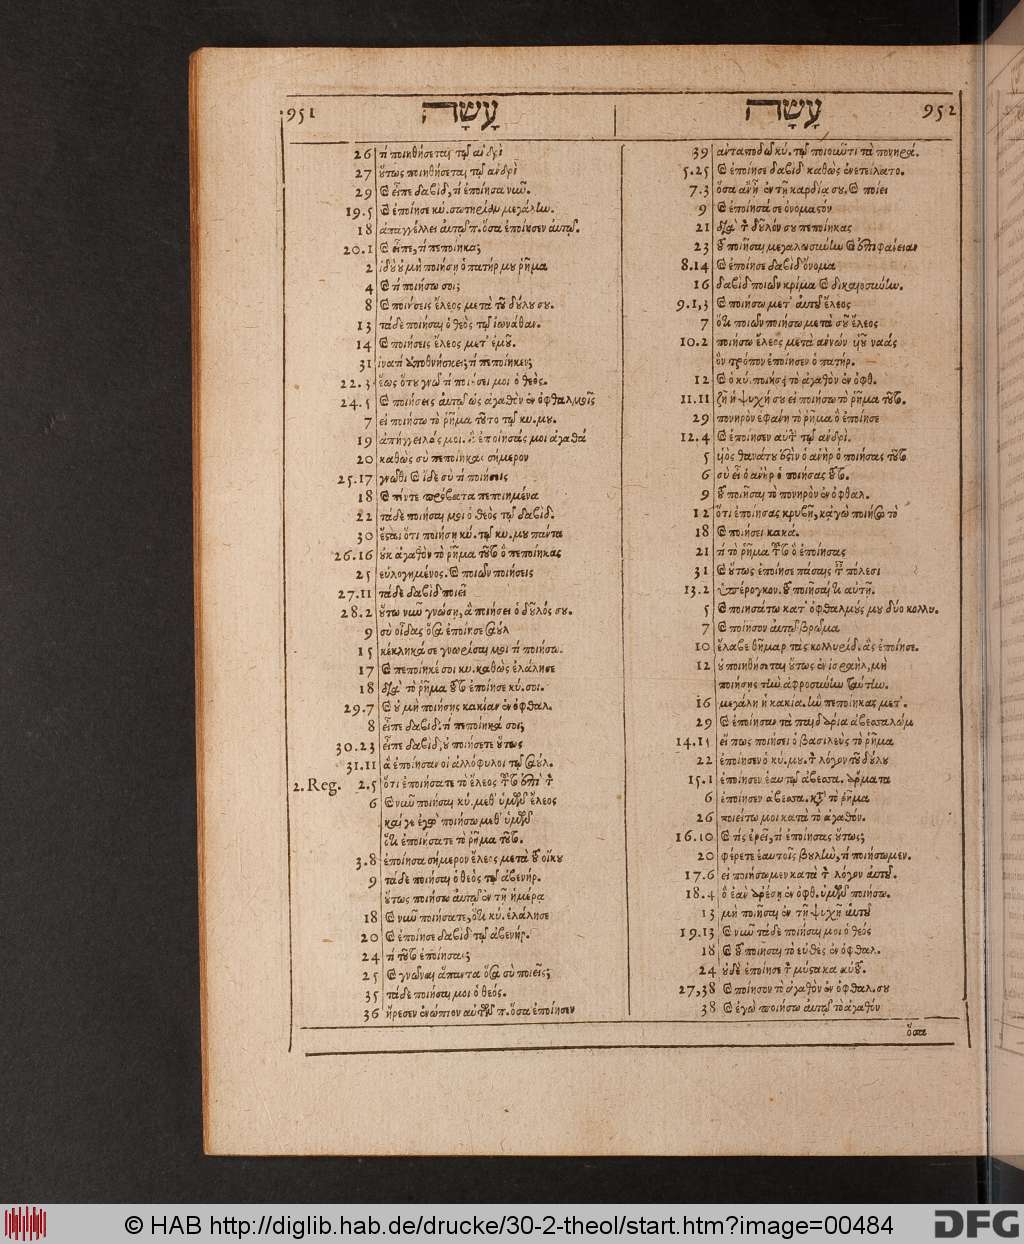 951 עָשָׂה
26 τί ποιηθήσεται τῷ ἀνδρὶ
27 ὕτως ποιηθήσεται τῷ ἀνδρὶ
29 ϗ εἶπε δαβὶδ, τί ἐποίησα νιῦ.
19.5 ϗ ἐποίησε κύ. σωτηρίαν μεγάλην.
18 ἀπαγγέλλει αὐτῷ π. ὅσα ἐποίησεν αὐτῷ.
20.1 ϗ εἶπε, τί πεποίηκα;
2 ἰδοὺ ὐ μὴ ποιήσῃ ὁ πατήρ μυ ῥῆμα
4 ϗ τί ποιήσω σοι;
8 ϗ ποιήσεις ἔλεος μετὰ τῦ δύλυ συ.
13 τάδε ποιήσαι ὁ θεὸς τῷ ἰωνάθαν.
14 ϗ ποιήσεις ἔλεος μετ᾽ ἐμῦ.
31 ἱνατί ἀποθνήσκει; τί πεποίηκεν;
22.3 ἕως ὅτυ γνῶ τί ποιήσει μοι ὁ θεὸς.
24.5 ϗ ποιήσεις αὐτῷ ὡς ἀγαθὸν ἐν ὀφθαλμοῖς
7 εἰ ποιήσω τὸ ῥῆμα τῦτο τῷ κυ. μυ.
19 ἀπήγγειλάς μοι. ἃ ἐποίησάς μοι ἀγαθά
20 καθὼς σὺ πεποίηκας σήμερον
25.17 γνῶθι ϗ ἴδε σὺ τί ποιήσεις
18 ϗ πέντε πρόβατα πεποιημένα
22 τάδε ποιήσαι μοι ὁ θεὸς τῷ δαβὶδ.
30 ἔσαι ὅτι ποιήσῃ κύ. τῷ κυ. μυ πάντα
26.16 ὐκ ἀγαθὸν τὸ ῥῆμα τῦτο ὃ πεποίηκας
25 εὐλογημένος. ϗ ποιῶν ποιήσεις
27.11 τάδε δαβὶδ ποιεῖ
28.2 ὕτω νιῦ γνώσῃ, ἃ ποιήσει ὁ δῦλός συ.
9 σὺ οἶδας ὅσα ἐποίησε σαύλ
15 κέκληκά σε γνωρίσαι μοι τί ποιήσω.
17 ϗ πεποίηκέ σοι κυ. καθὼς ἐλάλησε
18 διὰ τὸ ῥῆμα τῦτο ἐποίησε κύ. σοι.
29.7 ϗ ὐ μὴ ποιήσῃς κακίαν ἐν ὀφθαλ.
8 εἶπε δαβὶδ. τί πεποίηκά σοι;
30.23 εἶπε δαβὶδ, ὐ ποιήσετε ὕτως
31.11 ἃ ἐποίησαν οἱ ἀλλόφυλοι τῷ σαύλ.
2. Reg. 2.5 ὅτι ἐποιήσατε τὸ ἔλεος τῦτο ἐπὶ τ̀
6 ϗ νιῦ ποιήσαι κύ. μεθ᾽ ὑμῶν ἔλεος
καί γε ἐγὼ ποιήσω μεθ᾽ ὑμῶν
ὅτι ἐποιήσατε τὸ ῥῆμα τῦτο.
3.8 ἐποίησα σήμερον ἔλεος μετὰ τῦ οἴκυ
9 τάδε ποιήσαι ὁ θεὸς τῷ ἀβενήρ.
ὕτως ποιήσω αὐτῷ ἐν τῇ ἡμέρᾳ
18 ϗ νιῦ ποιήσατε, ὅτι κύ. ἐλάλησε
20 ϗ ἐποίησε δαβὶδ τῷ ἀβενήρ.
24 τί τῦτο ἐποίησας;
25 ϗ γνῶναι ἅπαντα ὅσα σὺ ποιεῖς;
35 τάδε ποιήσαι μοι ὁ θεός.
36 ἤρεσεν ἐνώπιον αὐτῶν π. ὅσα ἐποίησεν
עָשָׂה 952
39 ἀνταποδῷ κύ. τῷ ποιοῦντι τὰ πονηρά.
5.25 ϗ ἐποίησε δαβὶδ καθὼς ἐνετείλατο.
7.3 ὅσα ἂν ἐν τῇ καρδίᾳ συ. ϗ ποίει
9 ϗ ἐποίησά σε ὀνομαστὸν
21 διὰ τ̀ δῦλόν συ πεποίηκας
23 τῦ ποιῆσαι μεγαλωσύνην ϗ ἐπιφάνειαν
8.14 ϗ ἐποίησε δαβὶδ ὄνομα
16 δαβὶδ ποιῶν κρίμα ϗ δικαιοσύνην.
9.1,3 ϗ ποιήσω μετ᾽ αὐτῦ ἔλεος
7 ὅτι ποιῶν ποιήσω μετὰ σῦ ἔλεος
10.2 ποιήσω ἔλεος μετὰ ἀννών υἱῦ ναάς
ὃν τρόπον ἐποίησεν ὁ πατήρ.
12 ϗ ὁ κύ. ποιήσῃ τὸ ἀγαθὸν ἐν ὀφθ.
11.11 ζῇ ἡ ψυχή συ εἰ ποιήσω τὸ ῥῆμα τῦτο.
29 πονηρὸν ἐφάνη τὸ ῥῆμα ὃ ἐποίησε
12.4 ϗ ἐποίησεν αὐτ̀ τῷ ἀνδρί.
5 υἱὸς θανάτυ ἐστὶν ὁ ἀνὴρ ὁ ποιήσας τῦτο
6 σὺ εἶ ὁ ἀνὴρ ὁ ποιήσας τῦτο.
9 τῦ ποιῆσαι τὸ πονηρὸν ἐν ὀφθαλ.
12 ὅτι ἐποίησας κρυβῇ, κἀγὼ ποιήσω τὸ
18 ϗ ποιήσει κακά.
21 τί τὸ ῥῆμα τῦτο ὃ ἐποίησας
31 ϗ ὕτως ἐποίησε πάσαις τ̀ πόλεσι
13.2 ὑπέρογκον. τῦ ποιῆσαί τι αὐτῇ.
5 ϗ ποιησάτω κατ᾽ ὀφθαλμύς μυ δύο κολλυ.
7 ϗ ποίησον αὐτῷ βρῶμα
10 ἔλαβε θῆμαρ τὰς κολλυρίδ. ἃς ἐποίησε.
12 ὐ ποιηθήσεται ὕτως ἐν ἰσραήλ, μὴ
ποιήσῃς τὴν ἀφροσύνην ταύτην.
16 μεγάλη ἡ κακία. ἣν πεποίηκας μετ᾽.
29 ϗ ἐποίησαν τὰ παιδάρια ἀβεσαλὼμ
14.15 εἴ πως ποιήσει ὁ βασιλεὺς τὸ ῥῆμα
22 ἐποίησεν ὁ κύ. μυ. τ̀ λόγον τῦ δύλυ
15.1 ἐποίησεν ἑαυτῷ ἀβεσσα. ἅρματα
6 ἐποίησεν ἀβεσσα. κατὰ τὸ ῥῆμα
26 ποιείτω μοι κατὰ τὸ ἀγαθόν.
16.10 ϗ τίς ἐρεῖ, τί ἐποίησας ὕτως;
20 φέρετε ἑαυτοῖς βυλὴν, τί ποιήσωμεν.
17.6 εἰ ποιήσωμεν κατὰ τ̀ λόγον αὐτῦ.
18.4 ὃ ἐὰν ἀρέσῃ ἐν ὀφθ. ὑμῶν ποιήσω.
13 μὴ ποιῆσαι ἐν τῇ ψυχῇ αὐτῦ
19.13 ϗ νιῦ τάδε ποιήσαι μοι ὁ θεός
18 ϗ τῦ ποιῆσαι τὸ εὐθὲς ἐν ὀφθαλ.
24 ὐδὲ ἐποίησε τ̀ μύστακα αὐτῦ.
27,38 ϗ ποίησον τὸ ἀγαθὸν ἐν ὀφθαλ. συ
38 ϗ ἐγὼ ποιήσω αὐτῷ τὸ ἀγαθόν
ὅσα
© HAB http://diglib.hab.de/drucke/30-2-theol/start.htm?image=00484 DFG